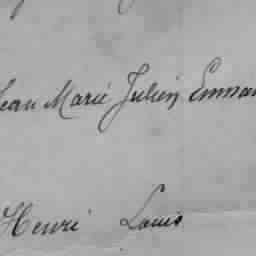 Jean Marie Julien Emman
Henri Louis